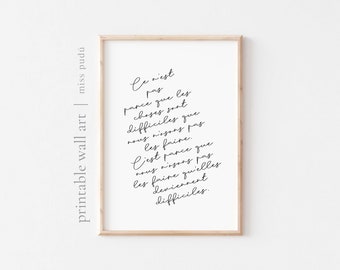 printable wall art | miss pudú
Ce n'est
pas
parce que les
choses sont
difficiles que
nous n'osons pas
les faire.
C'est parce que
nous n'osons pas
les faire qu'elles
deviennent
difficiles.